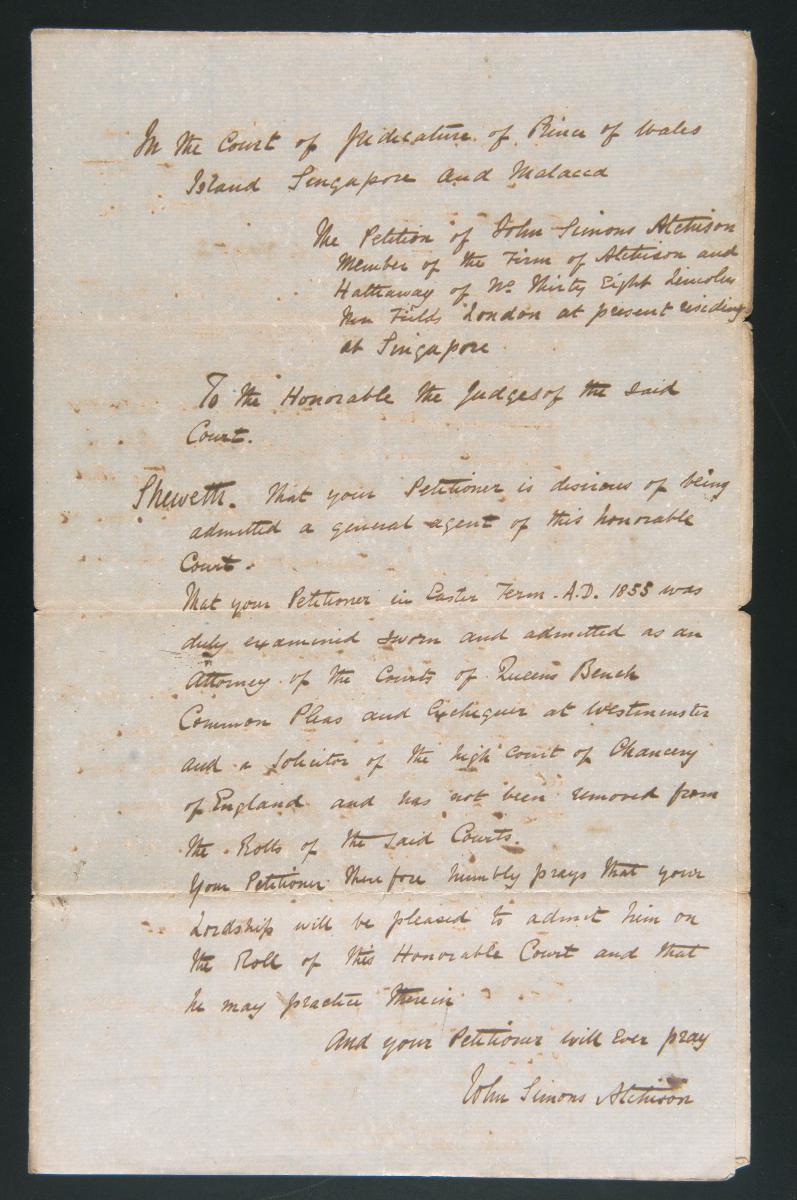 In the Court of Judicature of Prince of Wales
Island Singapore and Malacca
The Petition of John Simons Atchison
Member of the Firm of Atchison and
Hathaway of No Thirty Eight Lincolns
Inn Fields London at present residing
at Singapore
To the Honorable the Judges of the said
Court.
Sheweth. That your Petitioner is desirous of being
admitted a general agent of this honorable
Court.
That your Petitioner in Easter Term A.D. 1855 was
duly examined sworn and admitted as an
Attorney of the Courts of Queens Bench
Common Pleas and Exchequer at Westminster
and a Solicitor of the high court of Chancery
of England and has not been removed from
the Rolls of the said Courts.
Your Petitioner therefore humbly prays that your
Lordship will be pleased to admit him on
the Roll of this Honorable Court and that
he may practice therein
And your Petitioner will ever pray
John Simons Atchison